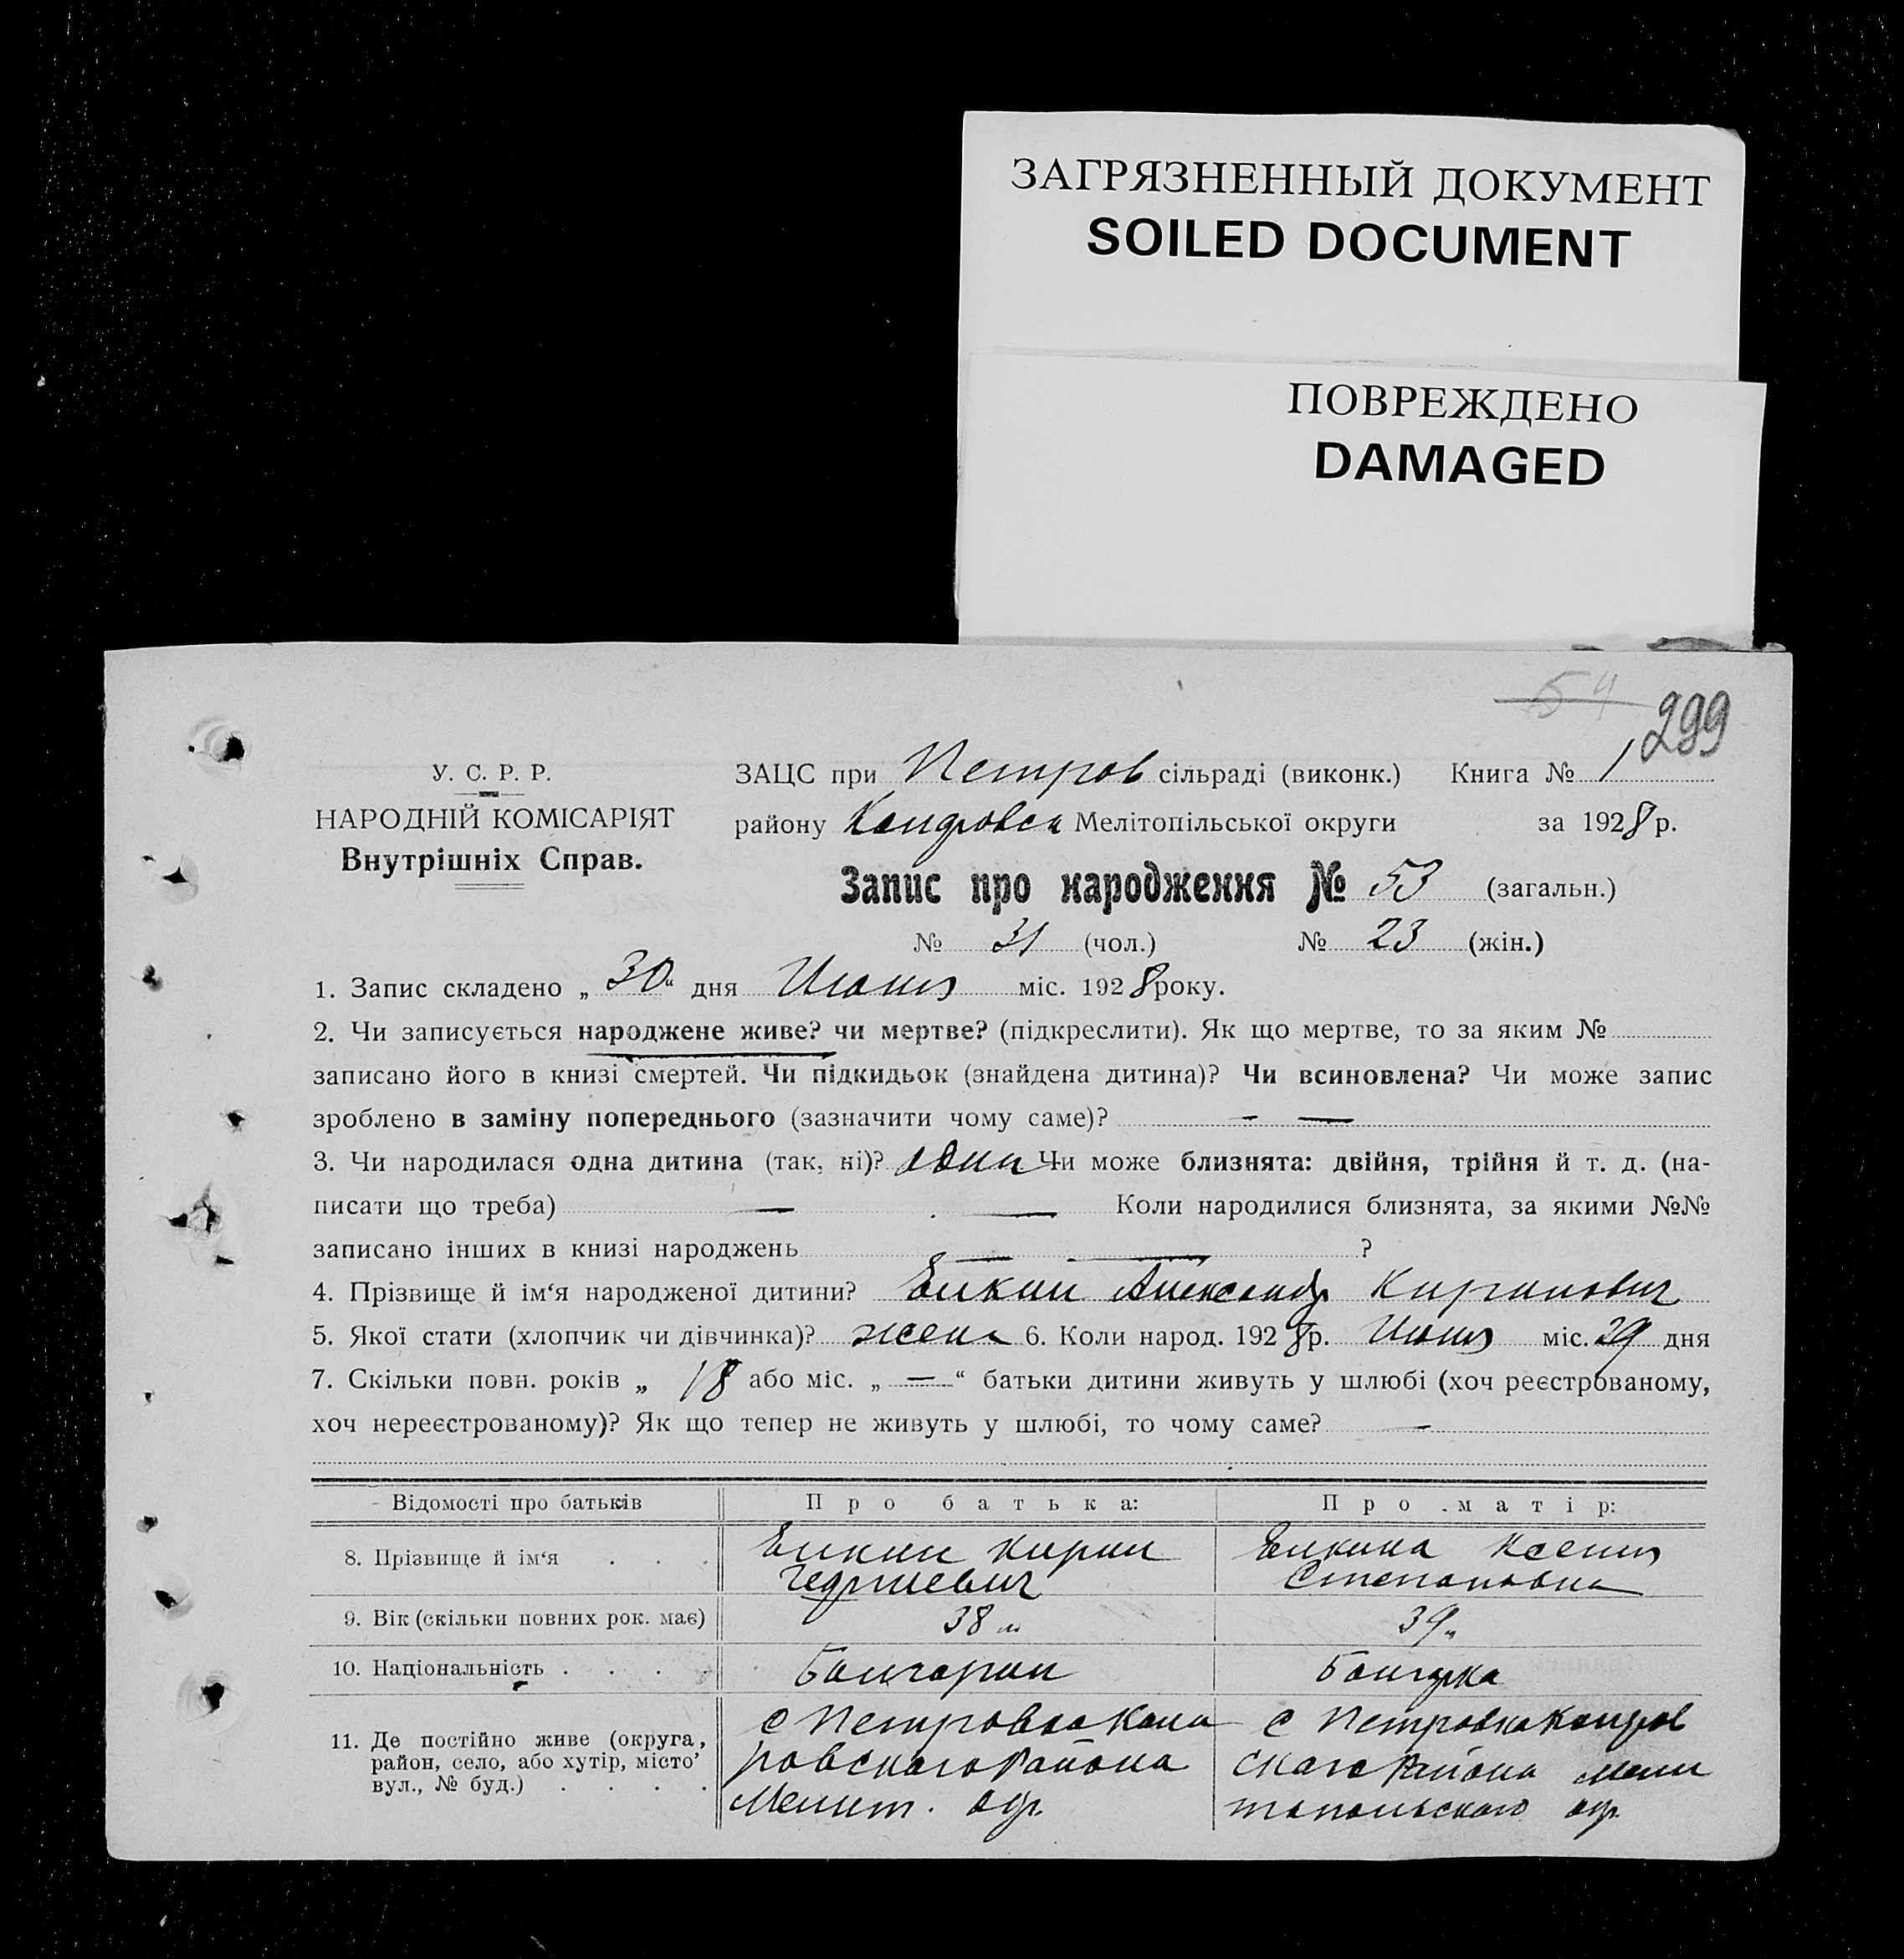 ЗАГРЯЗНЕННЫЙ ДОКУМЕНТ
SOILED DOCUMENT
ПОВРЕЖДЕНО
DAMAGED
54 299
У. С. Р. Р.
НАРОДНІЙ КОМІСАРІЯТ
Внутрішніх Справ.
ЗАЦС при Петров сільраді (виконк.) Книга № 1
району Мелітопільської округи за 1928 р.
Запис про народження № 53 (загальн.)
№ 31 (чол.) № 23 (жін.)
1. Запис складено „ 30 “ дня Июня міс. 1928 року.
2. Чи записується народжене живе? чи мертве? (підкреслити). Як що мертве, то за яким №
записано його в книзі смертей. Чи підкидьок (знайдена дитина)? Чи всиновлена? Чи може запис
зроблено в заміну попереднього (зазначити чому саме)? — —
3. Чи народилася одна дитина (так, ні)? один Чи може близнята: двійня, трійня й т. д. (на-
писати що треба) — — Коли народилися близнята, за якими №№
записано інших в книзі народжень — — ?
4. Прізвище й ім‘я народженої дитини? Елкин Александр Кирилович
5. Якої стати (хлопчик чи дівчинка)? 6. Коли народ. 1928 р. Июня міс. 29 дня
7. Скільки повн. років „ 18 або міс. „ — “ батьки дитини живуть у шлюбі (хоч реєстрованому,
хоч нереєстрованому)? Як що тепер не живуть у шлюбі, то чому саме? —
Відомості про батьків Про батька: Про матір:
8. Прізвище й ім‘я . . . Елкин Кирил Елкина Ксения
Степановна
9. Вік (скільки повних рок. має) 38 39
10. Національність . . . . Болгарин Болгарка
11. Де постійно живе (округа, район, село, або хутір, місто’ вул., № буд.) . . . .
с Петровка
ровского Района
Мелит. окр.
с Петровка
ского Района Мели
топольского окр.